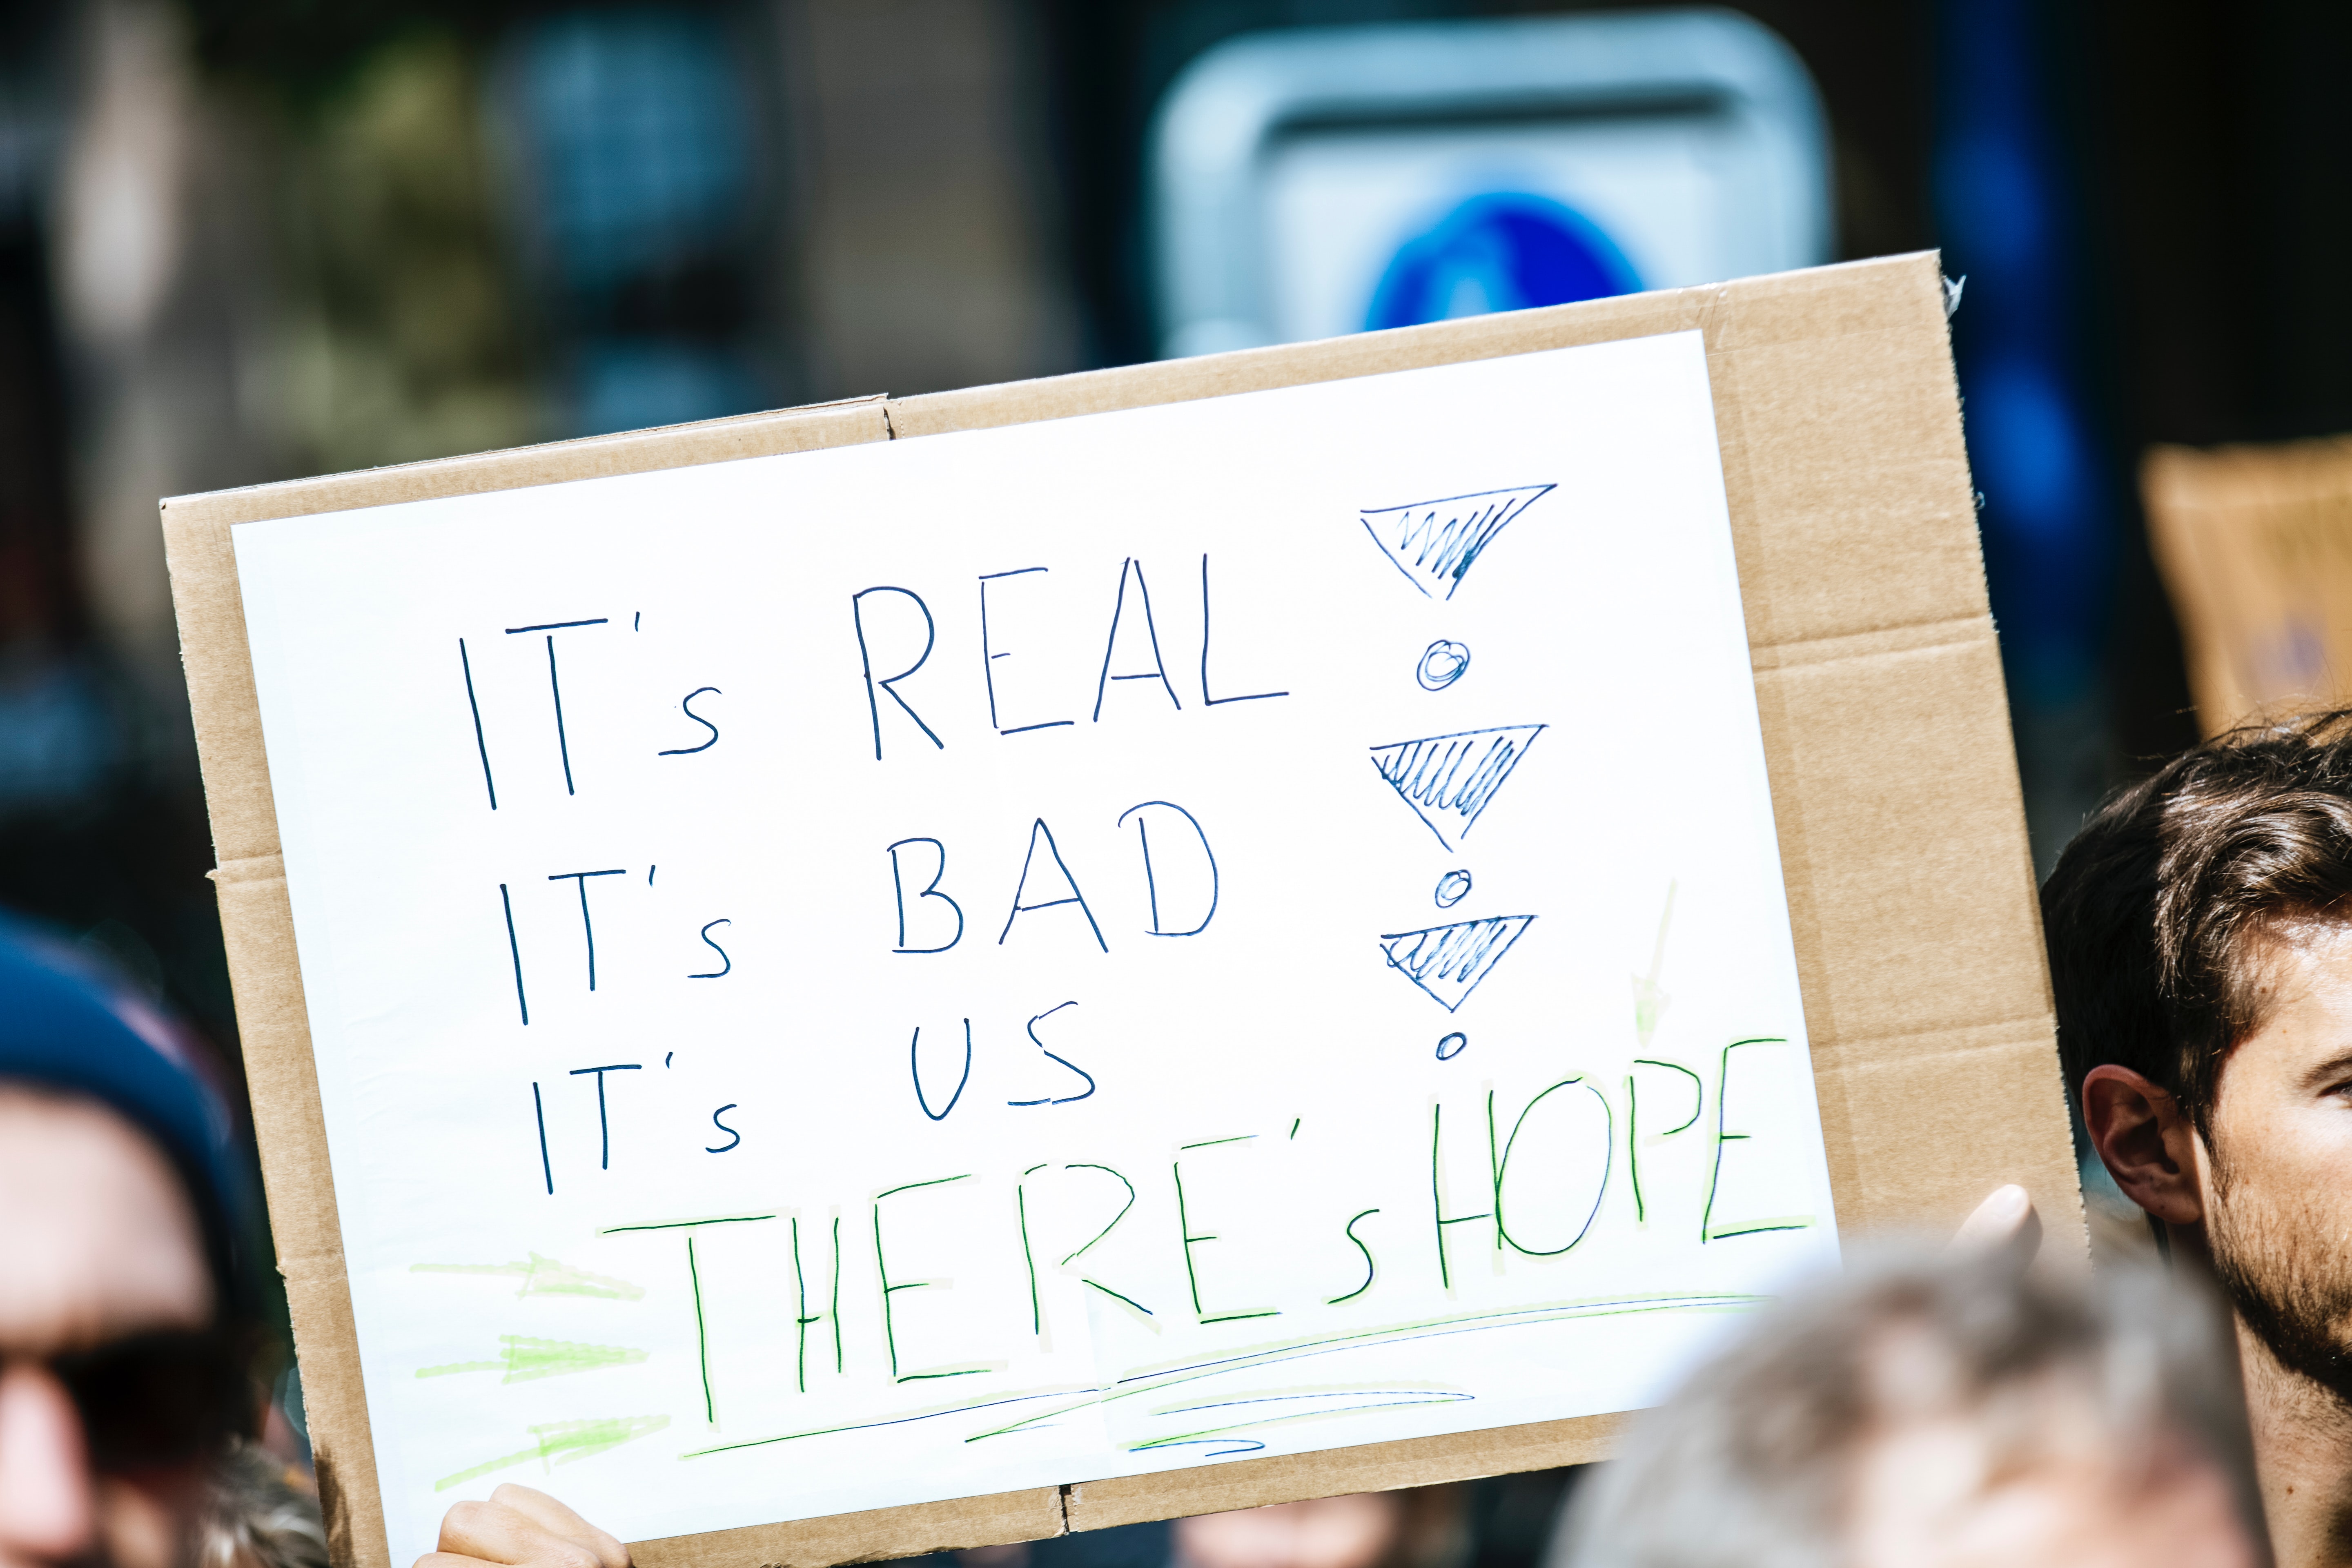 IT's REAL !
IT's BAD !
IT's US !
THERE's HOPE